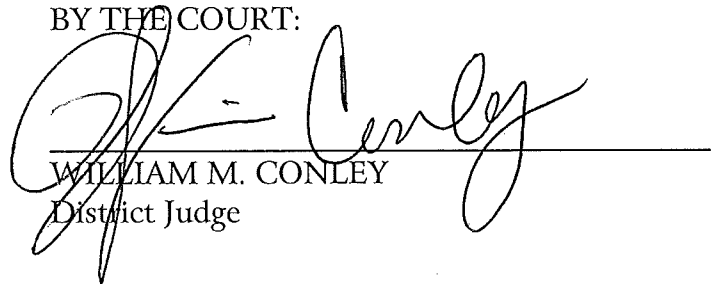 BY THE COURT:
William Conley
WILLIAM M. CONLEY
District Judge